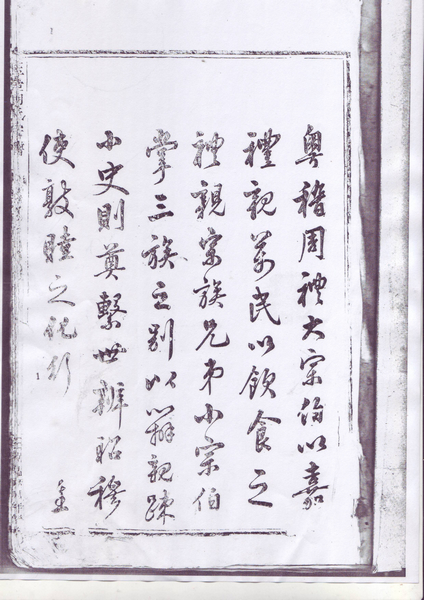 粤稽周禮大宗伯以嘉
禮親萬民以飲食之
禮親宗族兄弟小宗伯
掌三族之別以辨親疎
小史則奠繫世辨昭穆
使敦睦之化行